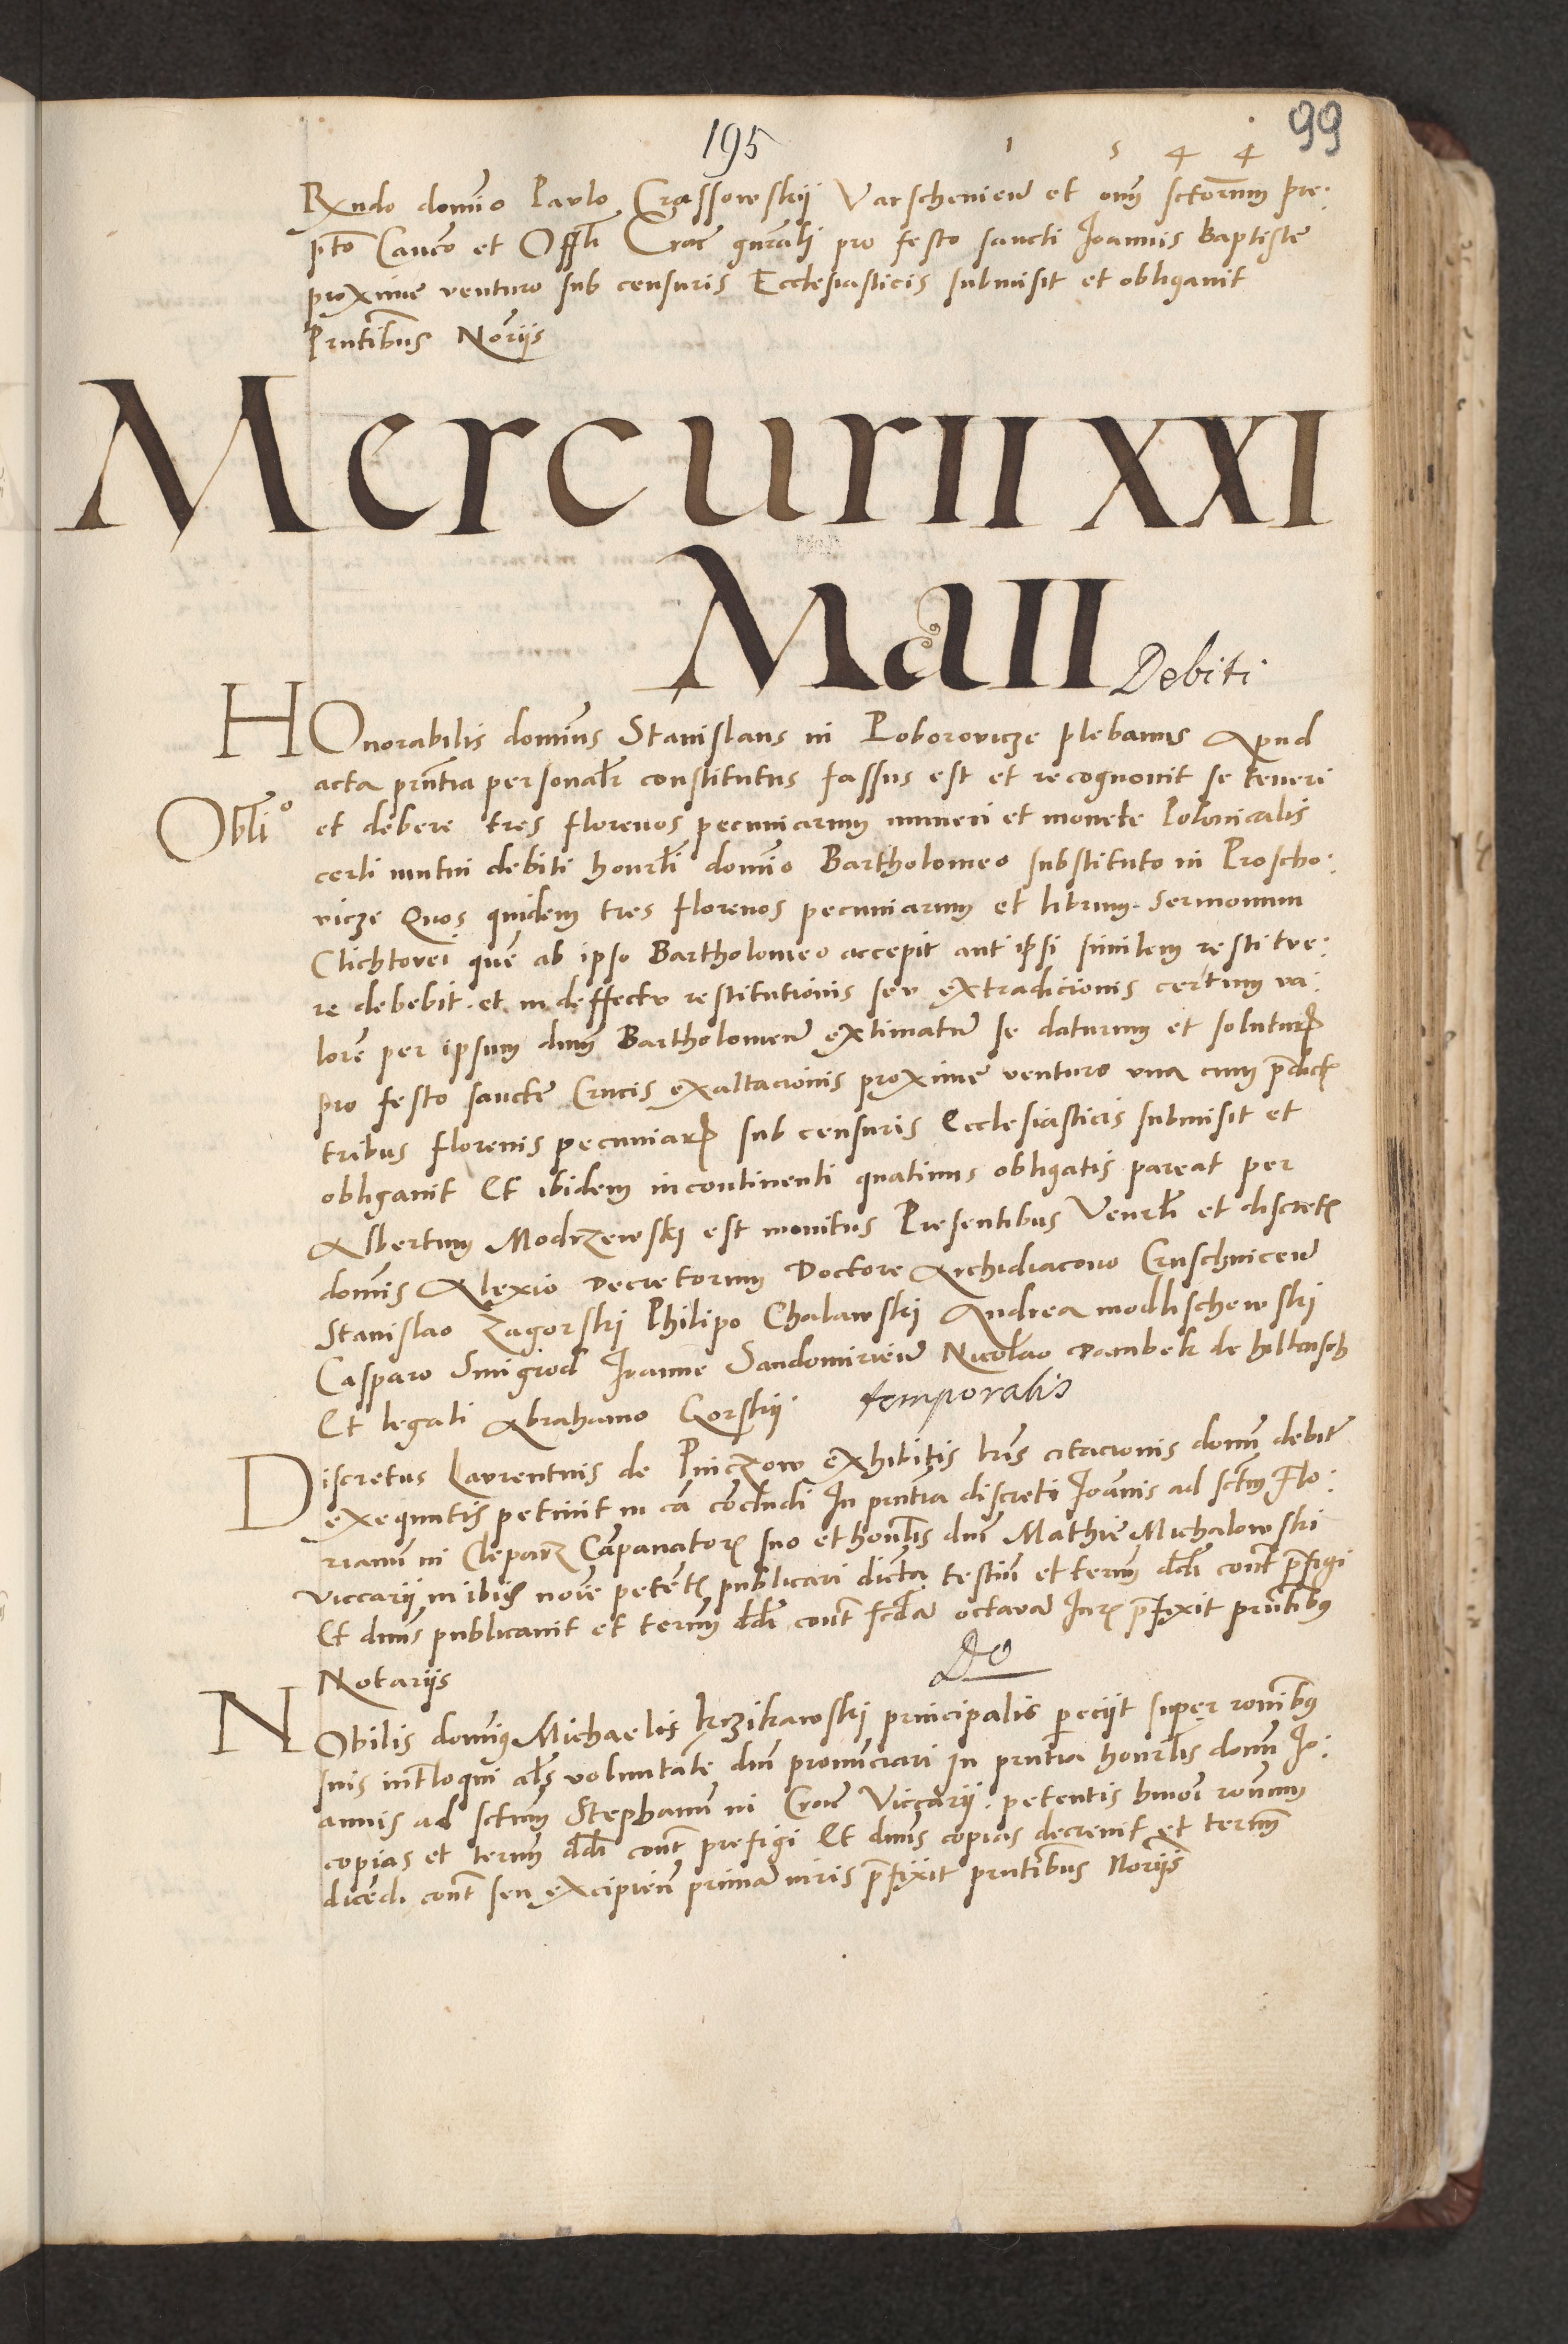 195
1 5 4 4
99
Rndo domino Paulo Crassowskij Varscheniens et oim sctorum pre:
pto Cantco et Offli Crac gnrali pro festo sancti Joannis Baptiste
proxime venturo sub censuris Ecclesiasticis submisit et obligavit
Prntibus Noriis
Mercurii XXI
Maii
Debiti
HOnorabilis dominus Stanislaus in Poborovicze plebanus Apud
acta prntia personalr constitutus fassus est et recognovit se teneri
Oblio
et debere tres florenos pecuniarum numeri et monete Polonicalis
certi mutui debiti honrli domino Bartholomeo substituto in Proscho:
vicze Quos quidem tres florenos pecuniarum et librum Sermonum
Clichtovei quem ab ipso Bartholomeo accepit aut ipsi similem restitue:
re debebit et in deffectu restitutionis seu extradicionis certum va:
lorem per ipsum dnum Bartholomeum extimatum se daturum et soluturum
pro festo sancte Crucis exaltacionis proxime venturo una cum pdict
tribus florenis pecuniar sub censuris Ecclesiasticis submisit et
obligavit Et ibidem incontinenti quatinus obligatis pareat per
Albertum Modrzewski est monitus Presentibus Venrli et discret
domnis Alexio Decretorum Doctore Archidiacono Cruschvicien
Stanislao Zagorski Philipo Chalawski Andrea modlischewski
Casparo Smigrod Joanne Sandomirien Nicolao Dambek de
Et legali Abrahamo Gorskij
temporalis
Discretus Laurentius de Pinczow exhibitis lris citacionis domi debite
exequutis petiuit in ca concludi In prntia discreti Joannis ad sctum Flo:
rianum in Cleparz Campanator suo et honrlis dni Mathie Michalowski
viccarij in ibid noie petent publicari dicta testium et termum ddi cont prefigi
Et dnus publicavit et termum ddi cont scda octava Jur pfixit prntibus
Notariis
Do
NObilis dominus Michaelis Krzikawski principalis peciit super ronibus
suis intloqui als voluntate dni pronunciari in prntia honrlis domi Jo:
annis ad sctum Stephanum in Crac Viccarij petentis hmoi ronum
copias et termum ddi cont prefigi Et dnus copias decrevit et termum
dicendi cont seu excipien prima iuris pfixit prntibus Noriis